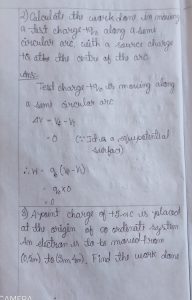 2) Calculate the work done in moving
a test charge +q₀ along a semi
circular arc, with a source charge
+Q at the centre of the arc
Ans:
Test charge +q₀ is moving along
a semi circular arc
ΔV = V₂ - V₁
= 0 (∵ It is a equipotential
surface)
∴ W = q₀ (V₂ - V₁)
= q₀ x 0
= 0
3) A point charge of +5 nc is placed
at the origin of co ordinate system
An electron is to be moved from
to Find the work done
CAMERA